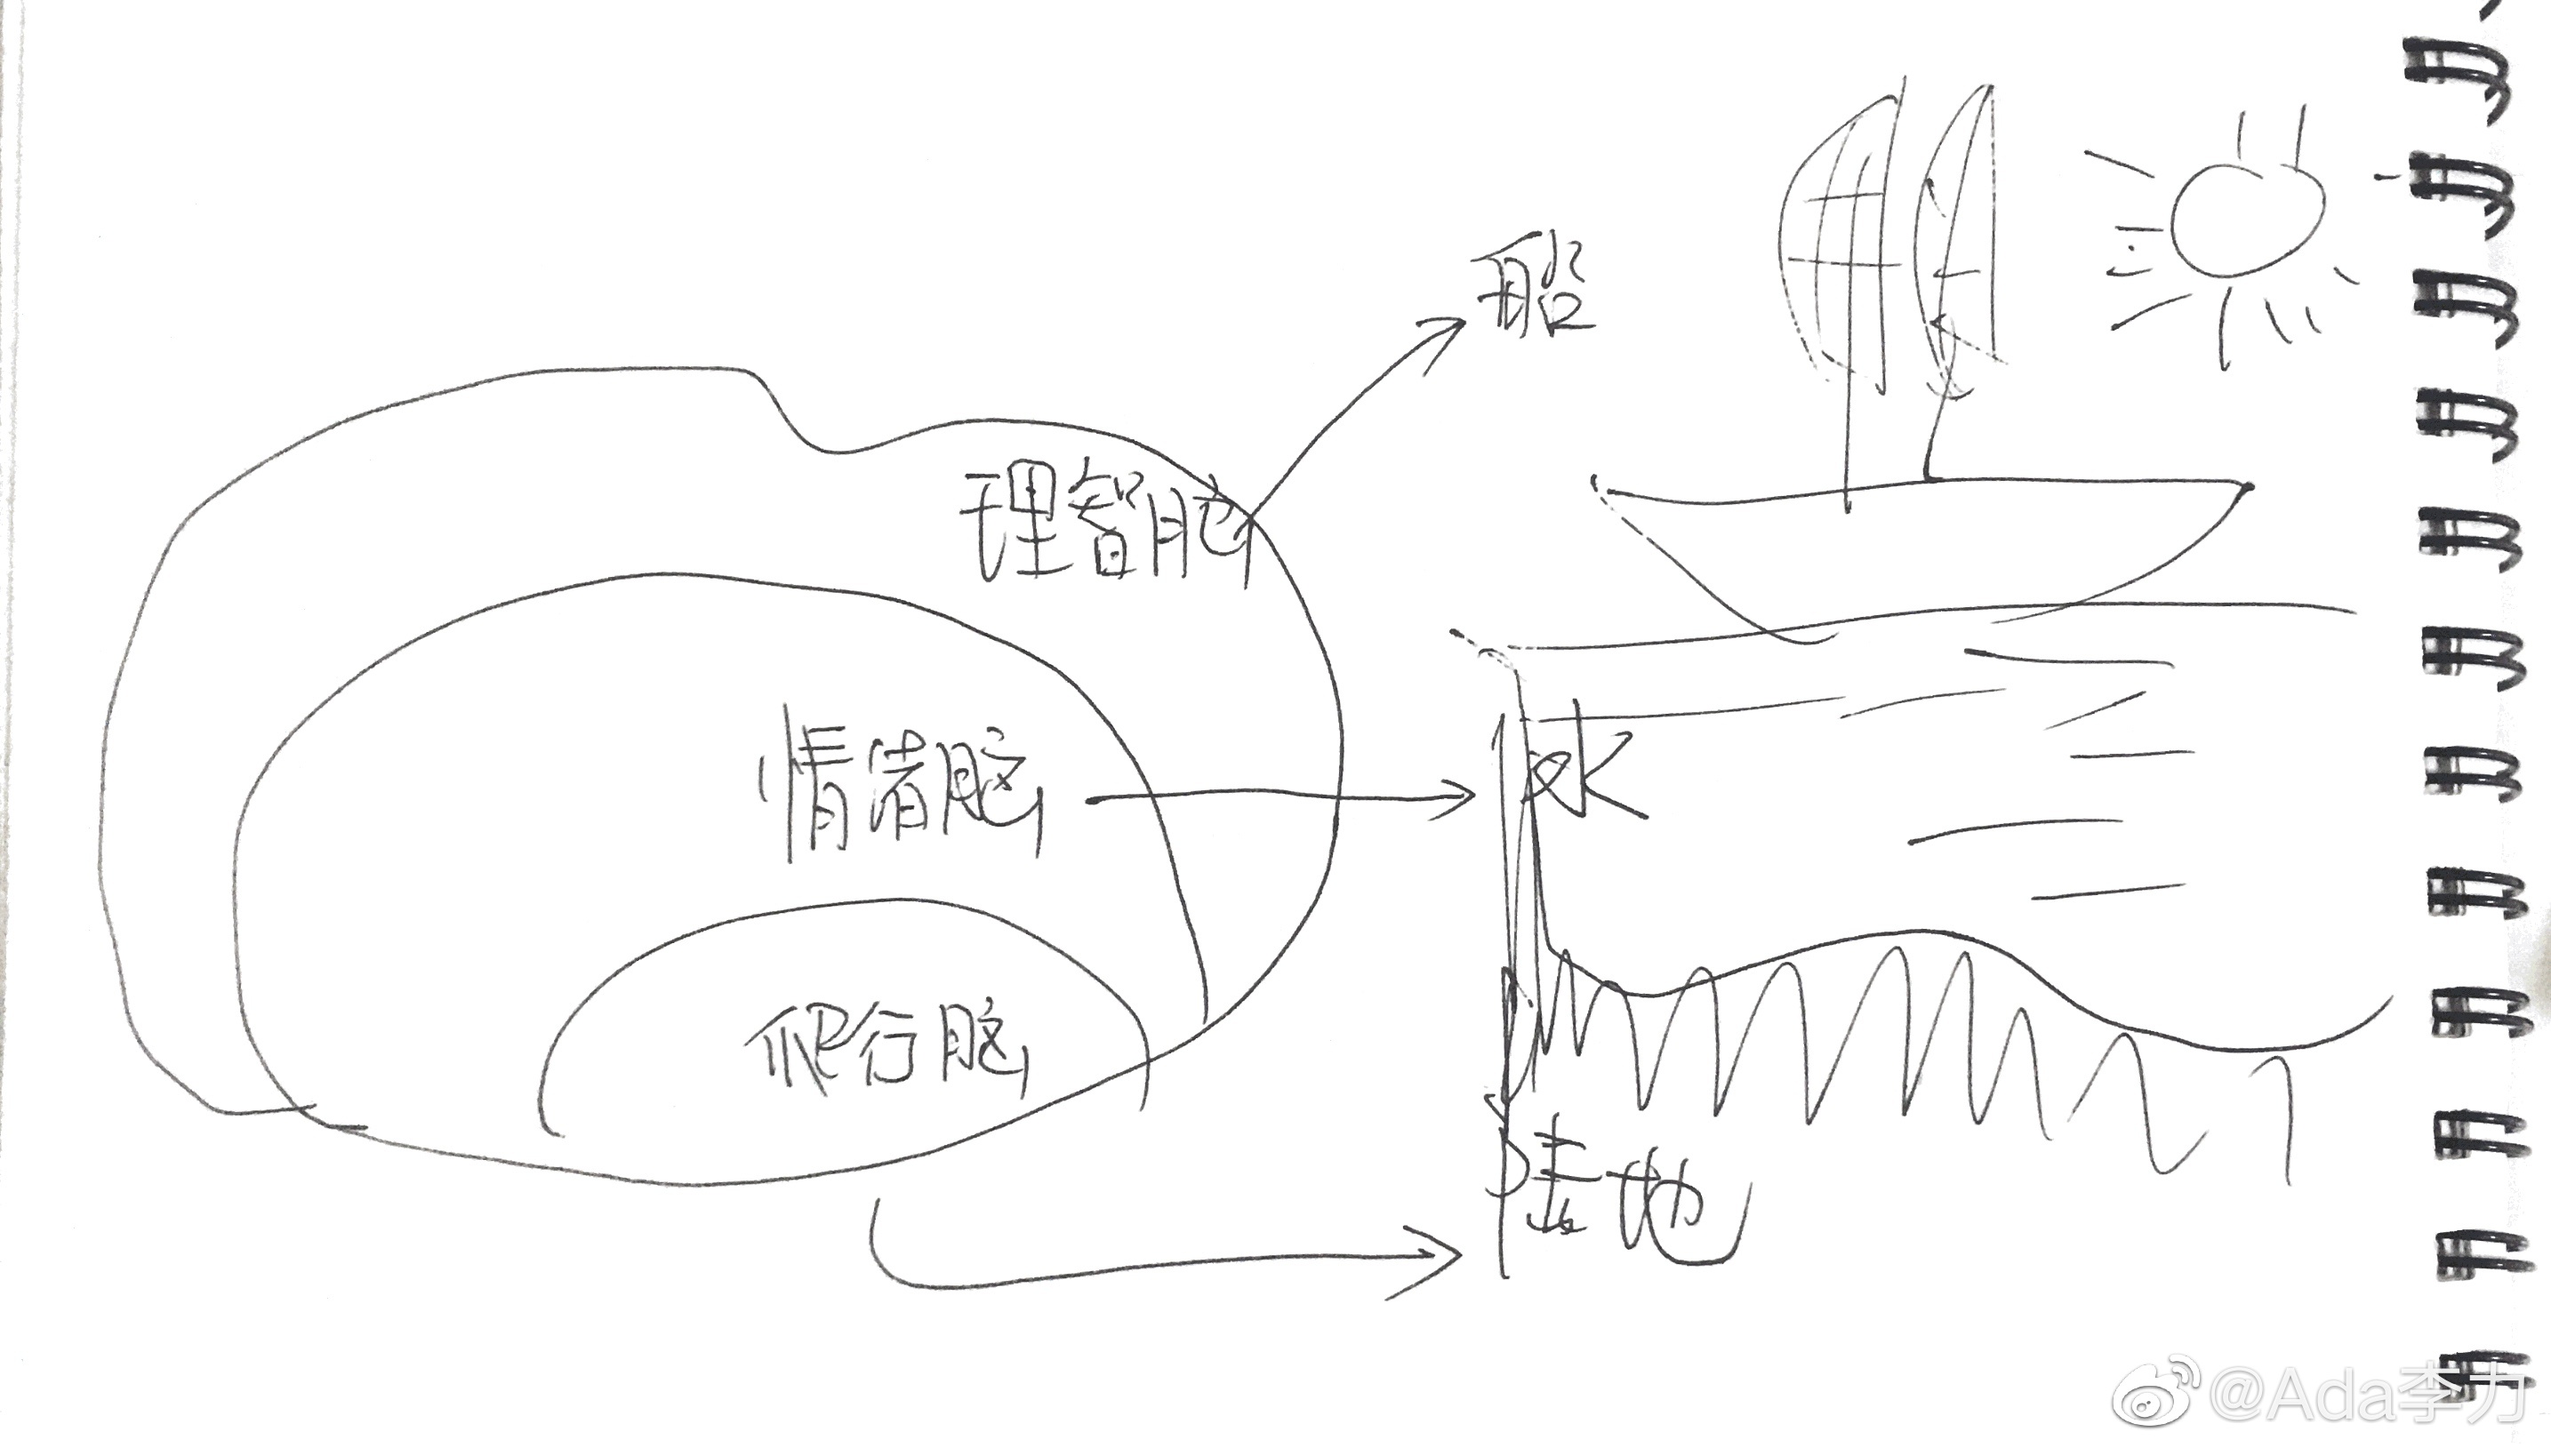 船
理智脑
情绪脑
水
爬行脑
陆地
@Ada李力